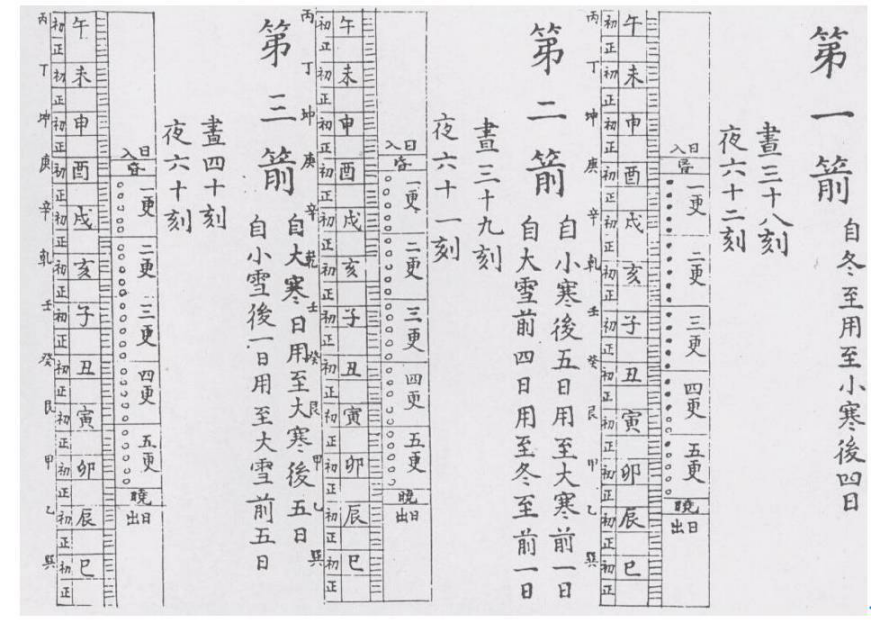 第一箭 自冬至用至小寒後四日
晝三十八刻
夜六十二刻
日入 昏 一更 二更 三更 四更 五更 曉 日出
午 未 申 酉 戌 亥 子 丑 寅 卯 辰 巳
初 正 初 正 初 正 初 正 初 正 初 正 初 正 初 正 初 正 初 正 初 正 初 正
丙 丁 坤 庚 辛 乾 壬 癸 艮 甲 乙 巽
第二箭 自小寒後五日用至大寒前一日
自大雪前四日用至冬至前一日
晝三十九刻
夜六十一刻
日入 昏 一更 二更 三更 四更 五更 曉 日出
午 未 申 酉 戌 亥 子 丑 寅 卯 辰 巳
初 正 初 正 初 正 初 正 初 正 初 正 初 正 初 正 初 正 初 正 初 正 初 正
丙 丁 坤 庚 辛 乾 壬 癸 艮 甲 乙 巽
第三箭 自大寒日用至大寒後五日
自小雪後一日用至大雪前五日
晝四十刻
夜六十刻
日入 昏 一更 二更 三更 四更 五更 曉 日出
午 未 申 酉 戌 亥 子 丑 寅 卯 辰 巳
初 正 初 正 初 正 初 正 初 正 初 正 初 正 初 正 初 正 初 正 初 正 初 正
丙 丁 坤 庚 辛 乾 壬 癸 艮 甲 乙 巽